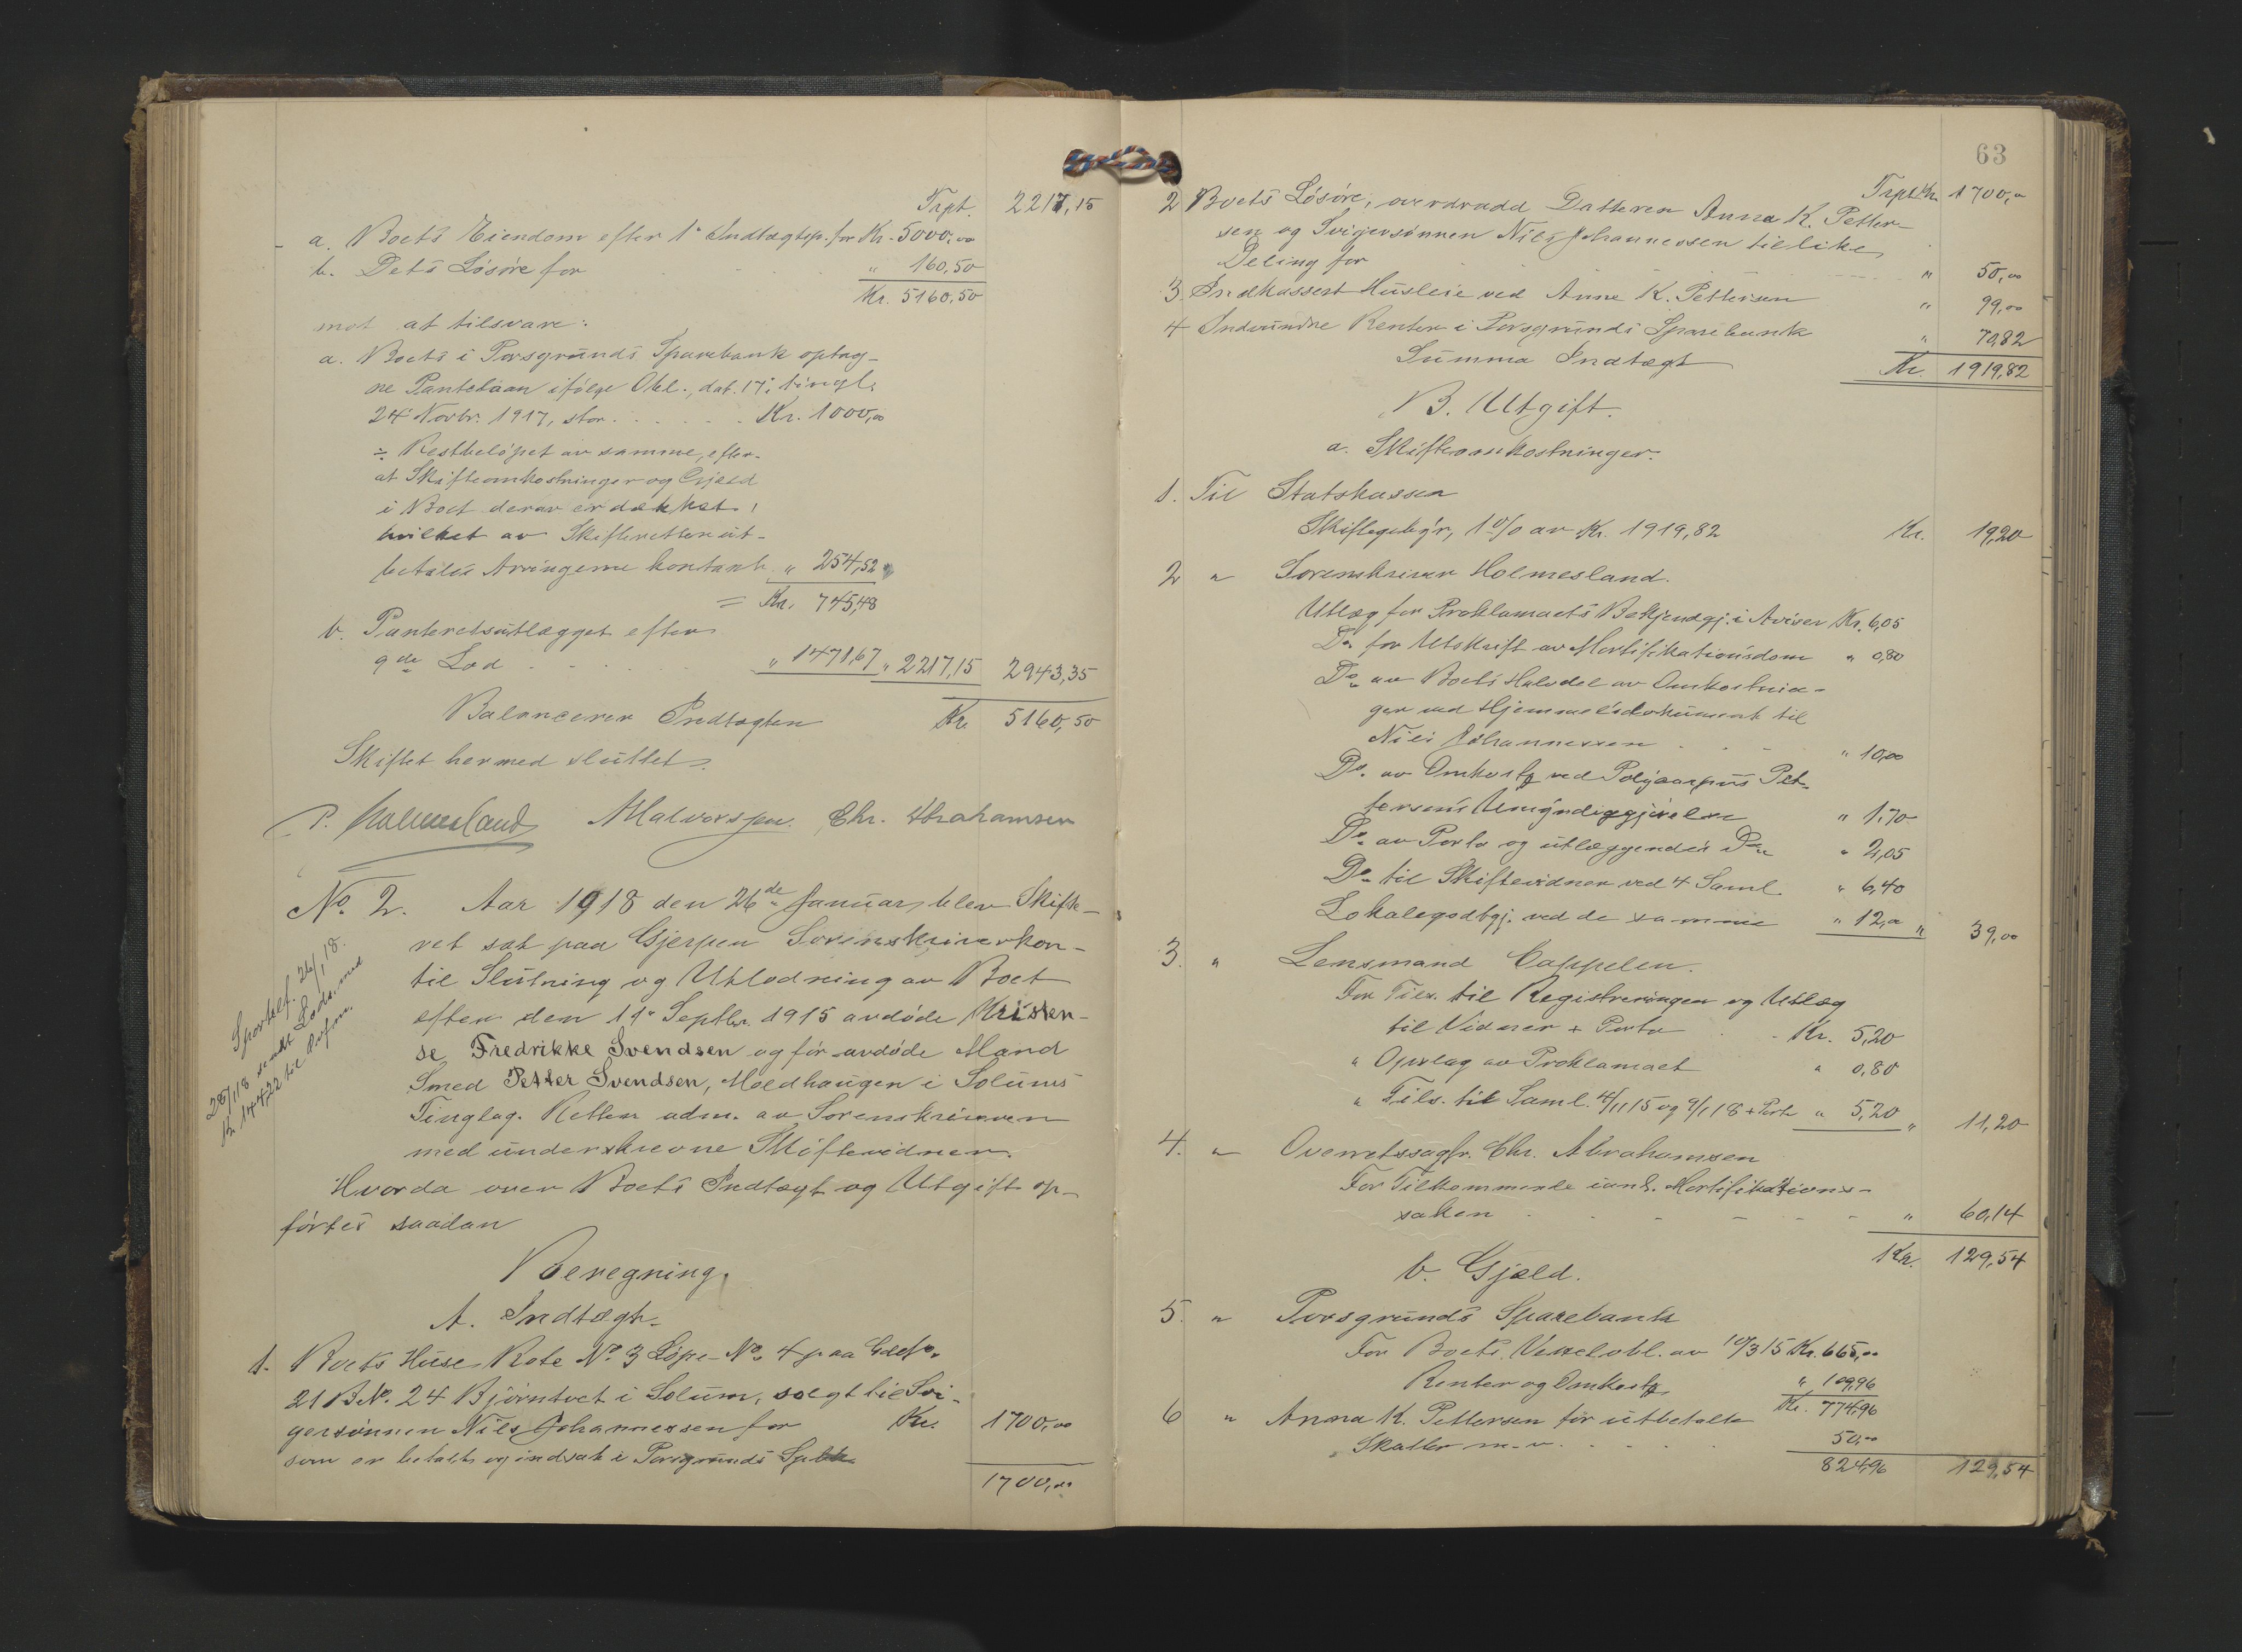 Trpt. 2217,15
a. Boets Eiendom efter 1ste Indtægtsp. for Kr. 5000,00
b. Dets Løsøre for . . . " 160,50
Kr. 5160,50
mot at tilsvare:
a. Boets i Porsgrunds Sparebank optag-
ne Pantelaan ifølge Obl., dat. 17, tingl.
24 Novbr. 1917, stor . . . . . . Kr. 1000,00
÷ Restbeløpet av samme, efter-
at Skifteomkostninger og Gjæld
i Boet derav er dækket,
hvilket av Skifteretten ut-
betales Arvingerne kontant " 254,52
= Kr. 745,48
b. Panteretsutlægget efter
9de Lod . . . . . " 1471,67 " 2217,15 2943,35
Balancerer Indtægten Kr. 5160,50
Skiftet hermed sluttet.
P. Holmesland AHalvorsen. Chr. Abrahamsen
No. 2. Aar 1918 den 26de Januar, blev Skifte-
ret sat paa Gjerpen Sorenskriverkon-
til Slutning og Utlodning av Boet
efter den 11te Septbr. 1915 avdøde Kristen-
se Fredrikke Svendsen og før avdøde Mand
Smed Petter Svendsen, Moldhaugen i Solums
Tinglag. Retten adm. av Sorenskriveren
med underskrevne Skiftevidner.
Sportelf. 26/1 18.
28/1 18 sendt Lods. med
Kr. 144,22 til
Hvorda over Boets Indtægt og Utgift op-
førtes saadan
Beregning.
A. Indtægt.
1. Boets Huse Rote No. 3 Løpe-No. 4 paa GdsNo.
21 BNo. 24 Bjørntvet i Solum, solgt til Svi-
gersønnen Nils Johannessen for Kr. 1700,00
som er betalt og indsat i Porsgrunds Spbk.
1700,00
63
Trpt. Kr. 1700,00
2 Boets Løsøre, overdradd Datteren Anna K. Petter-
sen og Svigersønnen Nils Johannessen til like
Deling for . . . " 50,00
3. Indkassert Husleie ved Anne K. Pettersen " 99,00
4 Indvundne Renter i Porsgrunds Sparebank " 70,82
Summa Indtægt Kr. 1919,82
B. Utgift.
a. Skifteomkostninger.
1. Til Statskassen
Skiftegebyr, 1 % av Kr. 1919,82 Kr. 19,20
2 " Sorenskriver Holmesland.
Utlæg for Proklamaets Bekjendtgj. i Aviser Kr. 6,05
Do. for Utskrift av Mortifikationsdom " 0,80
Do. av Boets Halvdel av Omkostnin-
ger ved Hjemmelsdokument til
Nils Johannessen . . . " 10,00
Do. av Omkostn. ved Polycarpus Pet-
tersens Umyndiggjørelse " 1,70
Do. av Porto og utlæggendes Do. " 2,05
Do. til Skiftevidner ved 4 Saml. " 6,40
Lokalegodtgj. ved de samme " 12,00 " 39,00
3. " Lensmand Cappelen.
For Tils. til Registreringen og Utlæg
til Vidner + Porto . . Kr. 5,20
" Opslag av Proklamaet " 0,80
" Tils. til Saml. 4/11 15 og 9/1 18 + Porto " 5,20 " 11,20
4. " Overretssagfr. Chr. Abrahamsen
For Tilkommende i anl. Mortifikations-
saken . . . . . " 60,14
Kr. 129,54
b. Gjæld.
5. " Porsgrunds Sparebank
For Boets Vexelobl. av 10/3 15 Kr. 665,00
Renter og Omkostn. " 109,96
Kr. 774,96
6 " Anna K. Pettersen for utbetalte
Skatter m. v. . . . . 50,00
824,96 129,54